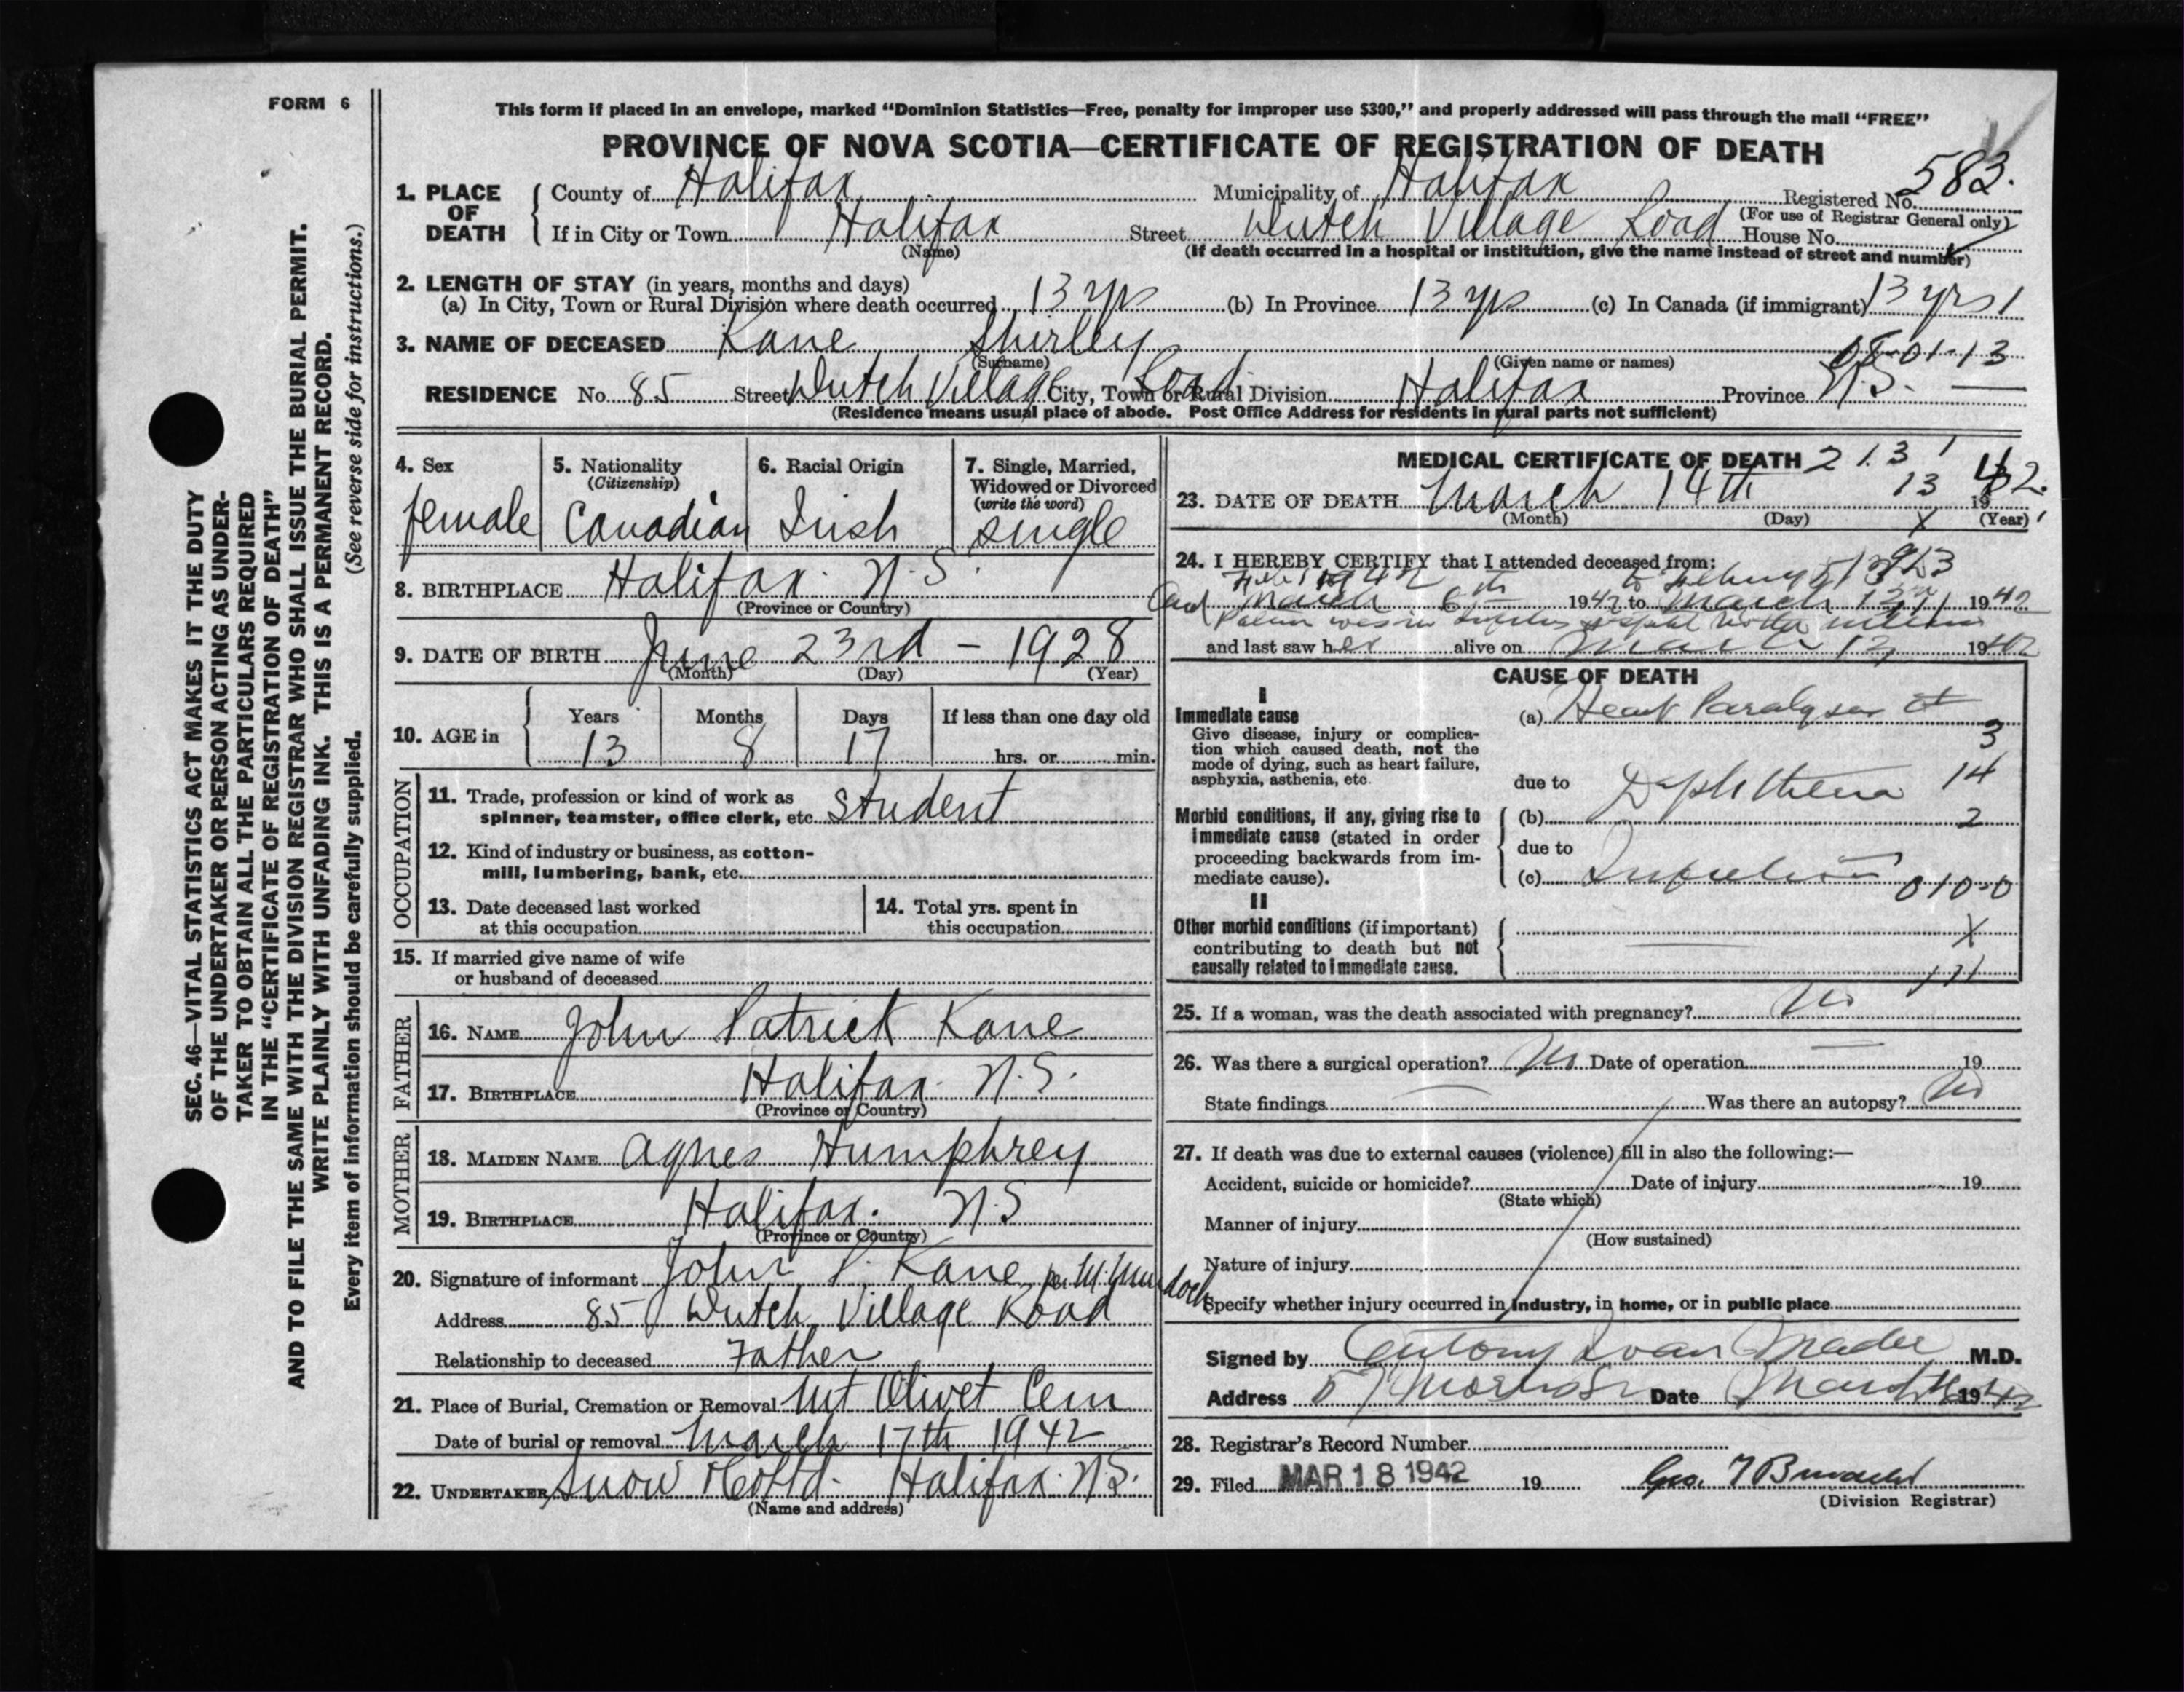 FORM 6
This form if placed in an envelope, marked "Dominion Statistics—Free, penalty for improper use $300," and properly addressed will pass through the mail "FREE"
PROVINCE OF NOVA SCOTIA—CERTIFICATE OF REGISTRATION OF DEATH
SEC. 46—VITAL STATISTICS ACT MAKES IT THE DUTY
OF THE UNDERTAKER OR PERSON ACTING AS UNDER-
TAKER TO OBTAIN ALL THE PARTICULARS REQUIRED
IN THE "CERTIFICATE OF REGISTRATION OF DEATH"
AND TO FILE THE SAME WITH THE DIVISION REGISTRAR WHO SHALL ISSUE THE BURIAL PERMIT.
WRITE PLAINLY WITH UNFADING INK. THIS IS A PERMANENT RECORD.
Every item of information should be carefully supplied. (See reverse side for instructions.)
1. PLACE OF DEATH County of Halifax Municipality of Halifax Registered No. 583.
(For use of Registrar General only)
If in City or Town Halifax Street Dutch Village Road House No.
(Name) (If death occurred in a hospital or institution, give the name instead of street and number)
2. LENGTH OF STAY (in years, months and days)
(a) In City, Town or Rural Division where death occurred 13 yrs (b) In Province 13 yrs (c) In Canada (if immigrant) 13 yrs 1
3. NAME OF DECEASED Kane Shirley
(Surname) (Given name or names) 08-01-13
RESIDENCE No. 85 Street Dutch Village Road City, Town or Rural Division Halifax Province N.S.
(Residence means usual place of abode. Post Office Address for residents in rural parts not sufficient)
4. Sex 5. Nationality 6. Racial Origin 7. Single, Married,
(Citizenship) Widowed or Divorced
(write the word)
female Canadian Irish single
8. BIRTHPLACE Halifax N.S.
(Province or Country)
9. DATE OF BIRTH June 23rd - 1928
(Month) (Day) (Year)
10. AGE in Years Months Days If less than one day old
13 8 17 hrs. or min.
OCCUPATION
11. Trade, profession or kind of work as
spinner, teamster, office clerk, etc. student
12. Kind of industry or business, as cotton-
mill, lumbering, bank, etc.
13. Date deceased last worked
at this occupation
14. Total yrs. spent in
this occupation
15. If married give name of wife
or husband of deceased
FATHER
16. NAME John Patrick Kane
17. BIRTHPLACE Halifax N.S.
(Province or Country)
MOTHER
18. MAIDEN NAME Agnes Humphrey
19. BIRTHPLACE Halifax. N.S
(Province or Country)
20. Signature of informant John P. Kane per M. Murdoch
Address 85 Dutch Village Road
Relationship to deceased Father
21. Place of Burial, Cremation or Removal Mt Olivet Cem
Date of burial or removal March 17th 1942
22. UNDERTAKER Snow & Co Ltd. Halifax N.S.
(Name and address)
MEDICAL CERTIFICATE OF DEATH 2 1 3 1
23. DATE OF DEATH March 14th 13 1942.
(Month) (Day) X (Year)
24. I HEREBY CERTIFY that I attended deceased from:
And March 6th 1942 to March 13 1942
and last saw her alive on March 13 1942
CAUSE OF DEATH
I
Immediate cause
Give disease, injury or complica-
tion which caused death, not the
mode of dying, such as heart failure,
asphyxia, asthenia, etc.
(a) Heart Paralysis
3
due to Diphtheria 14
Morbid conditions, if any, giving rise to
immediate cause (stated in order
proceeding backwards from im-
mediate cause).
(b) 2
due to
(c) Infection 010-0
II
Other morbid conditions (if important)
contributing to death but not
causally related to immediate cause.
X
171
25. If a woman, was the death associated with pregnancy? No
26. Was there a surgical operation? No Date of operation 19
State findings Was there an autopsy? No
27. If death was due to external causes (violence) fill in also the following:—
Accident, suicide or homicide? Date of injury 19
(State which)
Manner of injury
(How sustained)
Nature of injury
Specify whether injury occurred in industry, in home, or in public place
Signed by Antony Ivan Mader M.D.
Address 57 Morris St Date March 1942
28. Registrar's Record Number
29. Filed MAR 18 1942 19 Geo.
(Division Registrar)